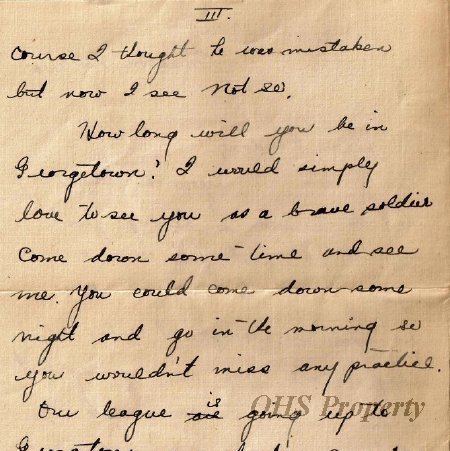 III.
course I thought he was mistaken
but now I see not so.
How long will you be in
Georgetown? I would simply
love to see you as a brave soldier
Come down some time and see
me. You could come down some
night and go in the morning so
you wouldn't miss any practice.
Our league is going up to
OHS Property